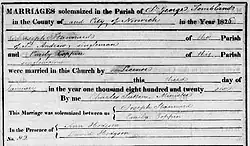 MARRIAGES solemnized in the Parish of St. George Tombland
in the County of and City of Norwich in the Year 1826
Joseph Stannard of this Parish
of St. Andrew's singleman
and Emily Coppin of this Parish
singlewoman
were married in this Church by Licence
this third day of
January in the year one thousand eight hundred and twenty six
By me Charles Millard Minister
This marriage was solemnized between us Joseph Stannard
Emily Coppin
In the Presence of Ann Hodgson
David Hodgson
No.